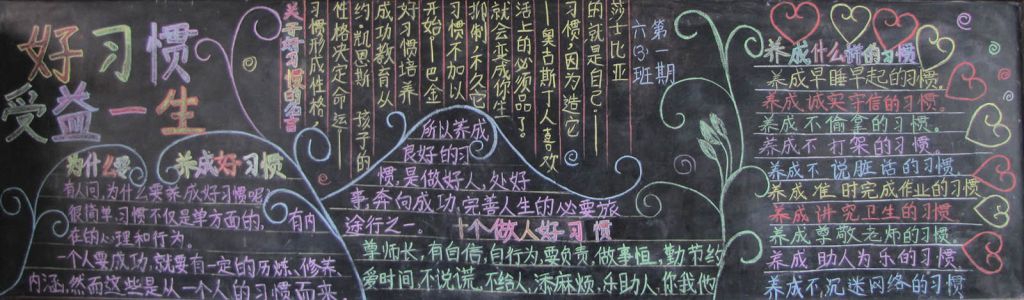 好习惯
受益一生
为什么要
养成好习惯
有人问,为什么要养成好习惯呢?
很简单,习惯不仅是单方面的,有内
在的心理和行为。
一个人要成功,就要有一定的历炼、修养、
内涵,然而这些是从一个人的习惯而来,
关于好习惯的名言
习惯形成性格
性格决定命运——
约·凯恩斯 孩子的
成功教育从
好习惯培养
开始——巴金
习惯不加以
抑制,不久它
就会变成你生
活上的必须品了。
——奥古斯丁人喜欢
习惯,因为造它
的就是自己。——
莎士比亚
第一期
六(3)班
所以养成
良好的习
惯,是做好人,处好
事,奔向成功,完善人生的必要旅
途行之一。
十个做人好习惯
尊师长,有自信,自行为,要负责,做事恒,勤节约
爱时间,不说谎,不给人,添麻烦,乐助人,你我他
养成什么样的习惯
养成早睡早起的习惯
养成诚实守信的习惯。
养成不偷拿的习惯。
养成不打架的习惯。
养成不说脏话的习惯
养成准时完成作业的习惯
养成讲究卫生的习惯
养成尊敬老师的习惯。
养成助人为乐的习惯
养成不沉迷网络的习惯